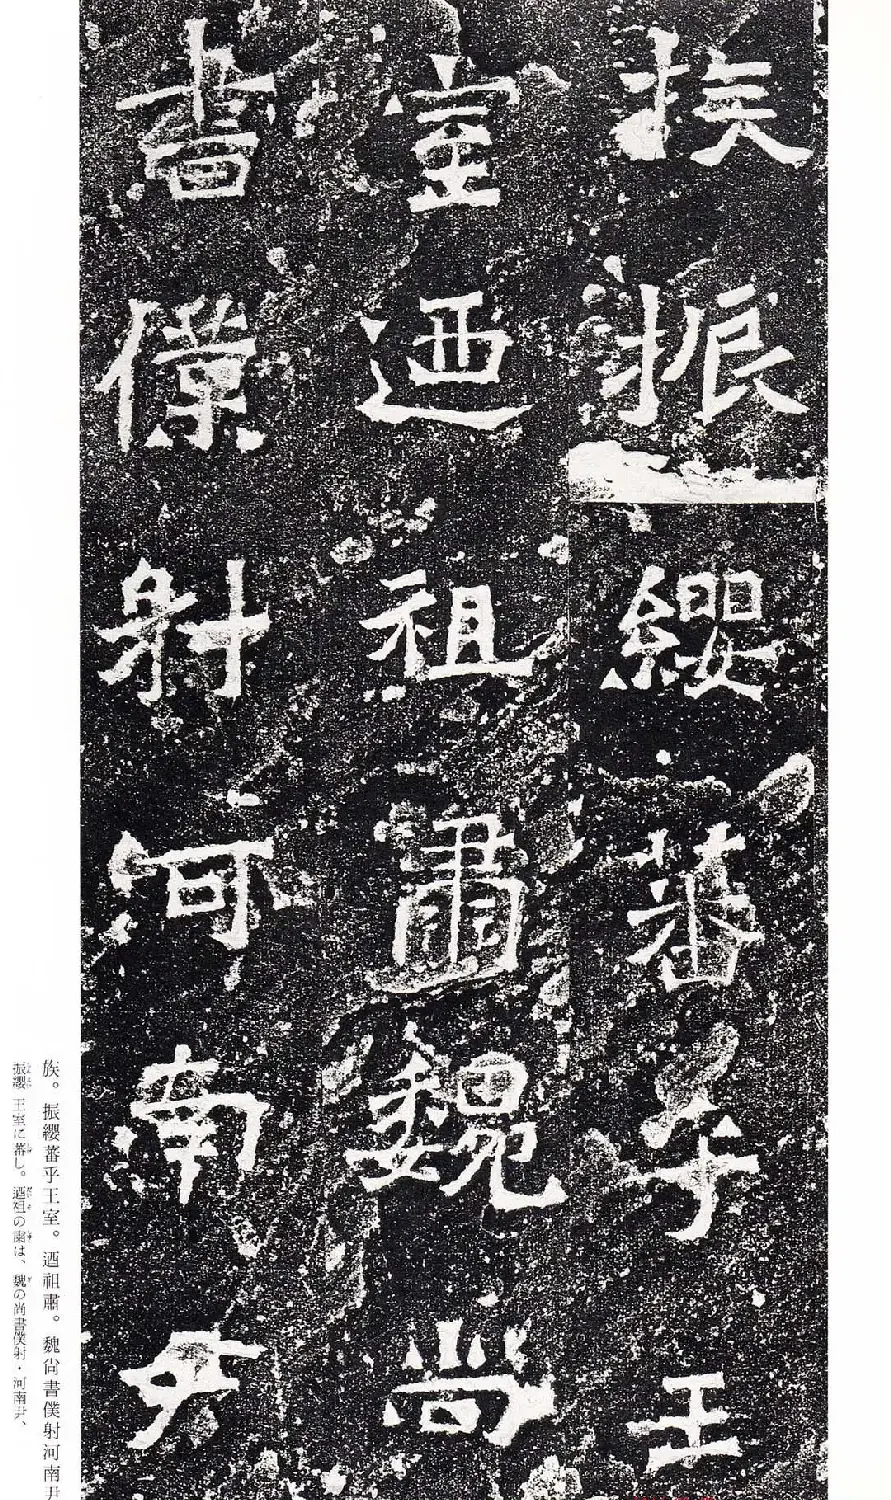 族振纓蕃乎王
室迺祖肅魏尚
書僕射河南尹
族。振纓蕃乎王室。迺祖肅。魏尙書僕射河南尹
振纓 王室に蕃し。迺祖の肅は、魏の尚書僕射・河南尹、